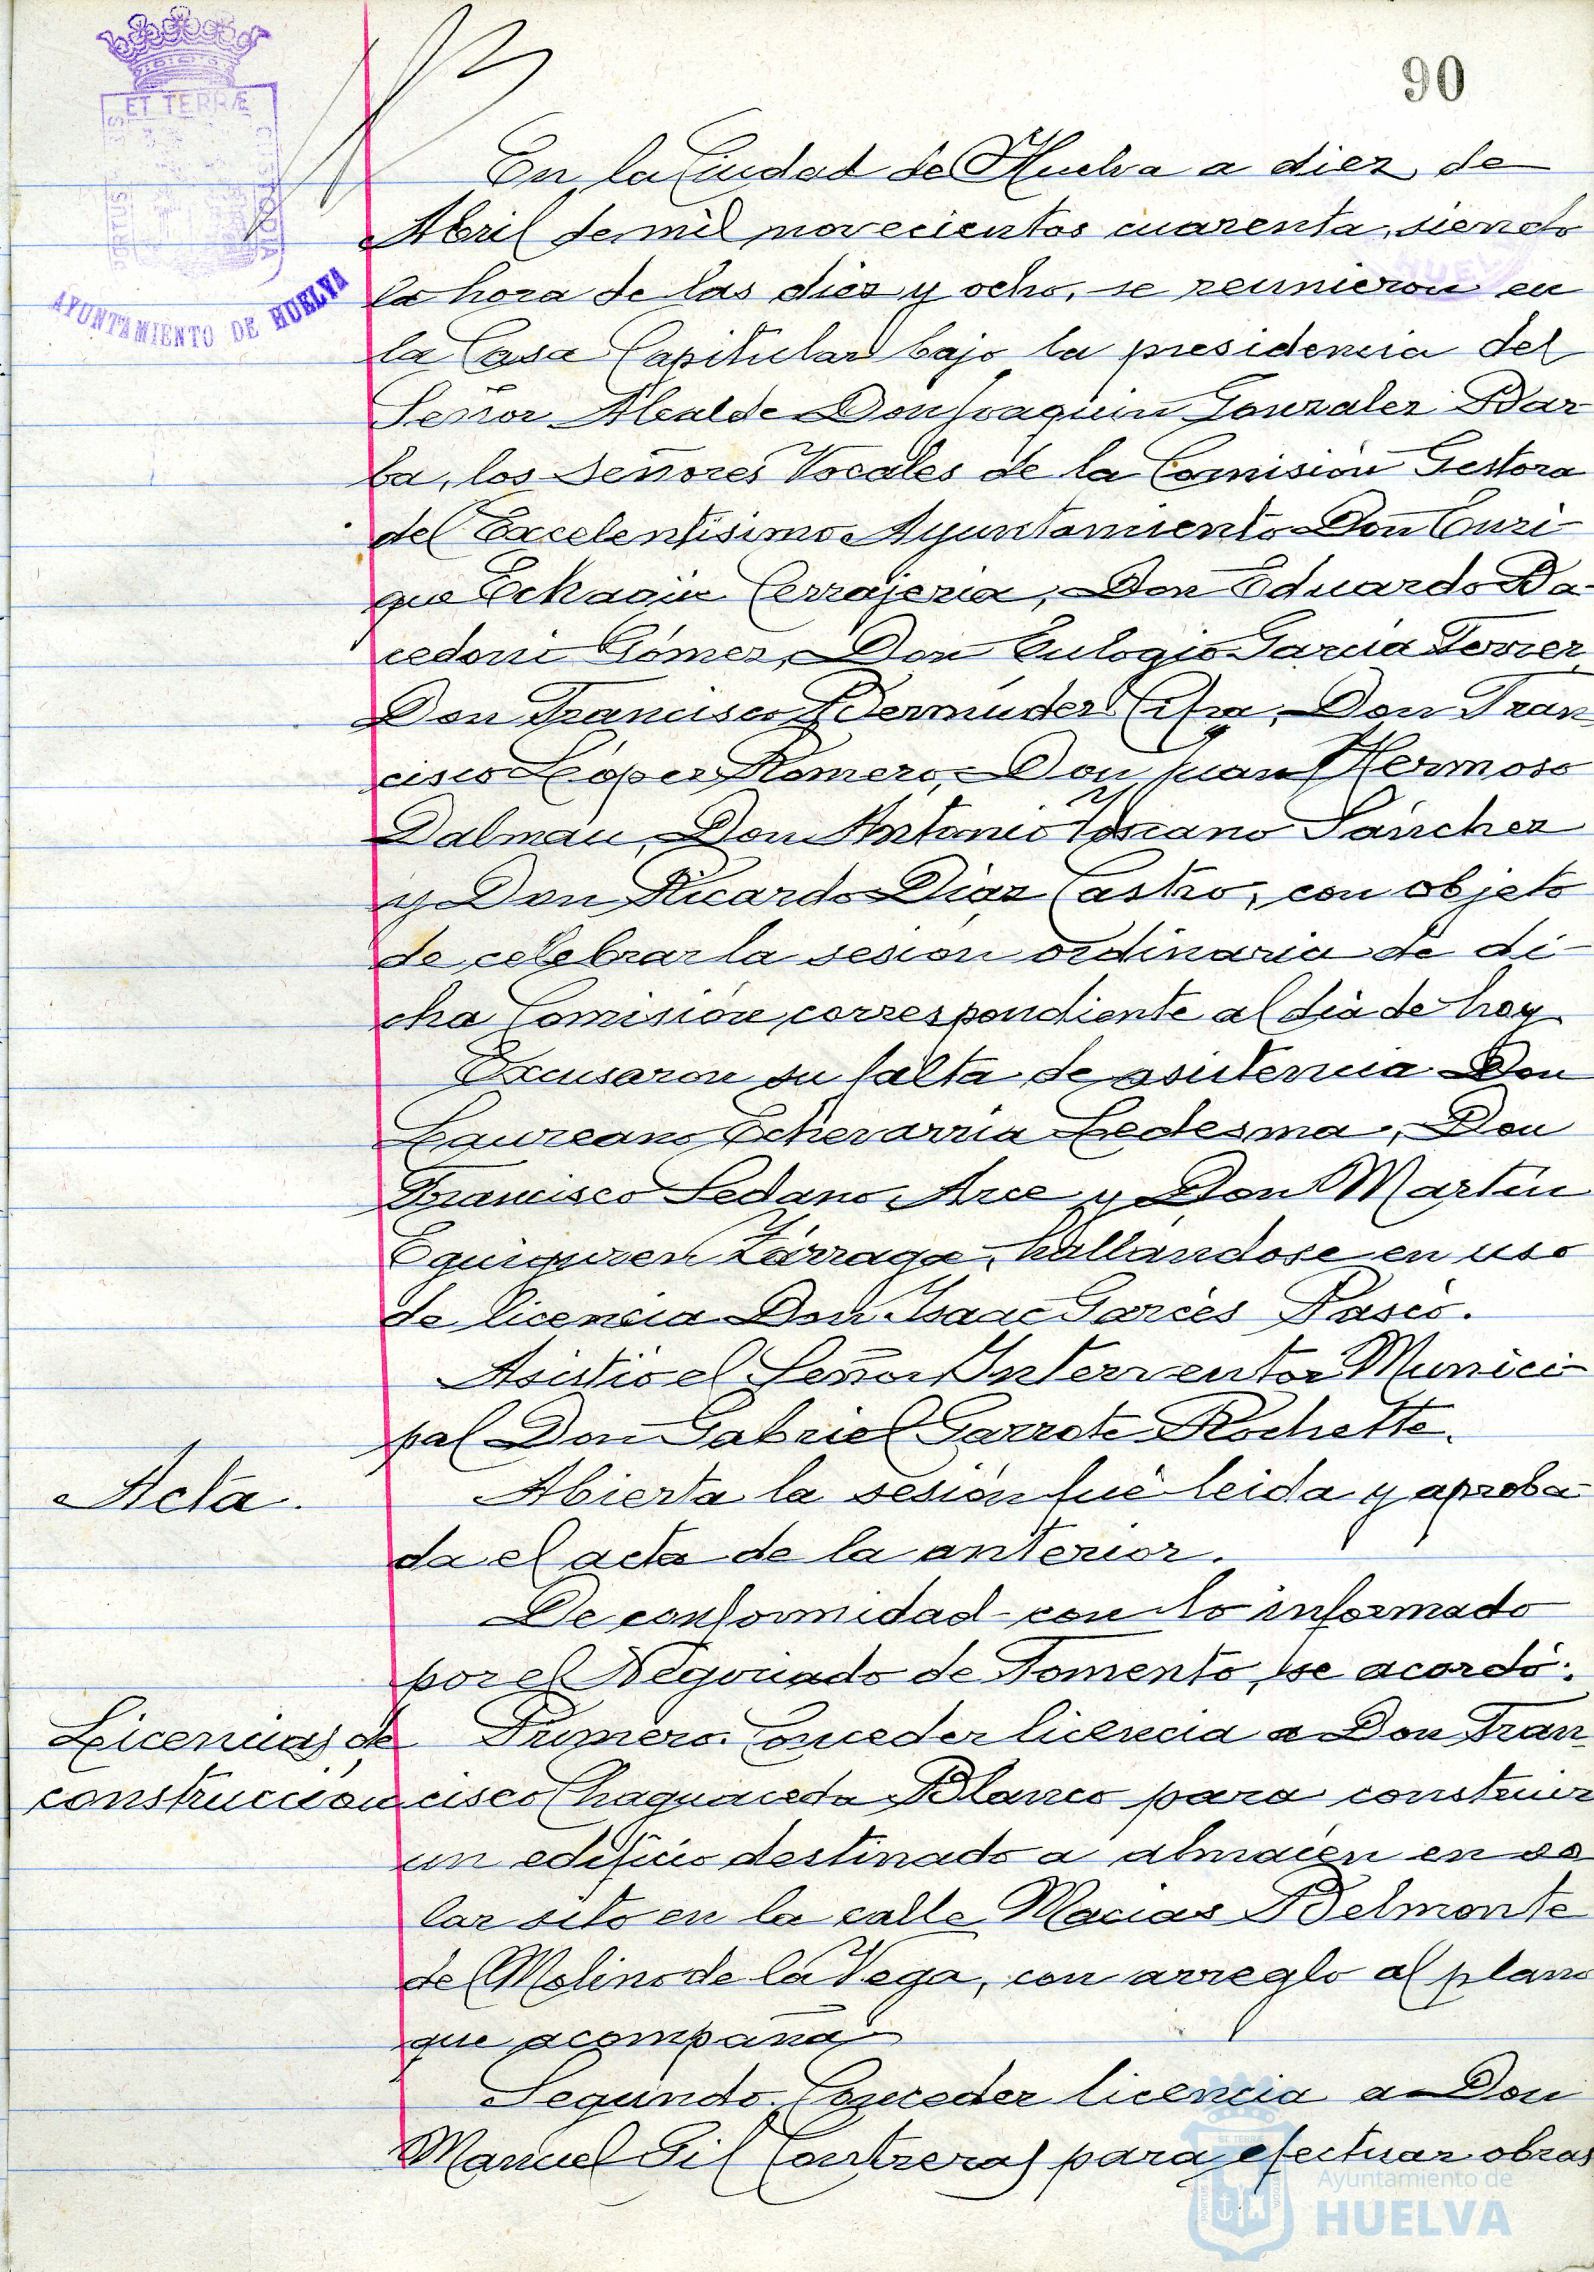 90
ET TERRÆ
PORTUS
CUSTODIA
AYUNTAMIENTO DE HUELVA
En la Ciudad de Huelva a diez de
Abril de mil novecientos cuarenta, siendo
la hora de las diez y ocho, se reunieron en
la Casa Capitular bajo la presidencia del
Señor Alcalde Don Joaquin Gonzalez Bar-
ba, los Señores Vocales de la Comisión Gestora
del Excelentísimo Ayuntamiento Don Enri-
que Echagüe Cerrajeria, Don Eduardo Da-
cedoni Gómez, Don Eulogio García Ferrer
Don Francisco Bermúdez Cifra, Don Fran
cisco López Romero, Don Juan Hermoso
Dalmau, Don Antonio Toscano Sánchez
y Don Ricardo Díaz Castro, con objeto
de celebrar la sesión ordinaria de di-
cha Comisión, correspondiente al día de hoy
Excusaron su falta de asistencia Don
Laureano Echevarria Ledesma, Don
Francisco Sedano Arce y Don Martín
Eguiguren Zárraga, hallándose en uso
de licencia Don Isaac Garcés Pasció.
Asistió el Señor Interventor Munici-
pal Don Gabriel Garrote Rochette.
Acta. Abierta la sesión fué leida y aproba-
da el acta de la anterior.
De conformidad con lo informado
por el Negociado de Fomento, se acordó:
Licencias de Primero. Conceder licencia a Don Fran
construcción cisco Chaguaceda Blanco para construir
un edificio destinado a almacén en so
lar sito en la calle Macias Belmonte
de Molino de la Vega, con arreglo al plano
que acompaña
Segundo. Conceder licencia a Don
Manuel Gil Contreras para efectuar obras
Ayuntamiento de
HUELVA